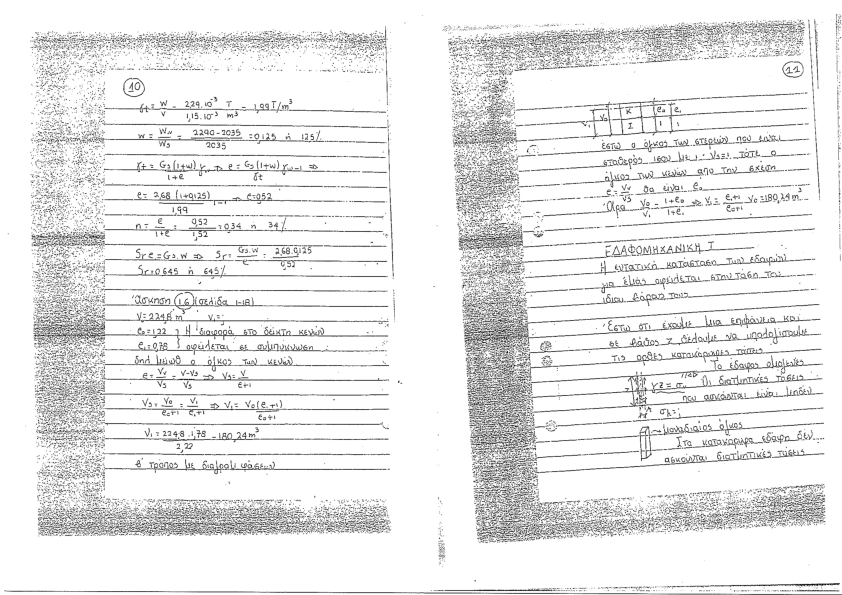 10
γt = W/V = 2,29.10⁻³ T / 1,15.10⁻³ m³ = 1,99 T/m³
w = Ww/Ws = 2290-2035 / 2035 = 0,125 ή 12,5%
γt = Gs(1+w)/1+e γw ⇒ e = Gs(1+w)/γt γw-1 ⇒
e = 2,68(1+0,125)/1,99 -1 ⇒ e=0,52
n = e/1+e = 0,52/1,52 = 0,34 ή 34%
Sr.e = Gs.w ⇒ Sr = Gs.w/e = 2,68.0,125/0,52
Sr=0,645 ή 64,5%
Άσκηση 1.6 (σελίδα 1-18)
V=224,8 m³ V₁=;
e₀=1,22 } Η διαφορά στο δείκτη κενών
e₁=0,78 } οφείλεται σε συμπύκνωση
δηλ μειώθ. ο όγκος των κενών
e = Vv/Vs = V-Vs/Vs ⇒ Vs = V/e+1
Vs = V₀/e₀+1 = V₁/e₁+1 ⇒ V₁ = V₀(e₁+1)/e₀+1
V₁ = 224,8.1,78/2,22 = 180,24 m³
β' τρόπος με διάγραμ. φάσεων
11
V₁ V₀ K Σ e₀ e₁ 1 1
Έστω ο όγκος των στερεών που είναι
σταθερός ίσον με 1. Vs=1 τότε ο
όγκος των κενών από την σχέση
e = Vv/Vs θα είναι e₀
Άρα V₀/V₁ = 1+e₀/1+e₁ ⇒ V₁ = e₁+1/e₀+1 V₀ = 180,24 m³
ΕΔΑΦΟΜΗΧΑΝΙΚΗ Ι
Η εντατική κατάσταση των εδαφών
για εμάς οφείλεται στην τάση του
ιδίου βάρους τους
Έστω ότι έχουμε μια επιφάνεια και
σε βάθος z θέλουμε να υπολογίσουμε
τις ορθές κατακόρυφες τάσεις
Το έδαφος ομογενές
γz = σᵥ Οι διατμητικές τάσεις
που ασκούνται είναι μηδέν
σh=;
→ μοναδιαίος όγκος
Στα κατακόρυφα εδάφη δεν
ασκούνται διατμητικές τάσεις